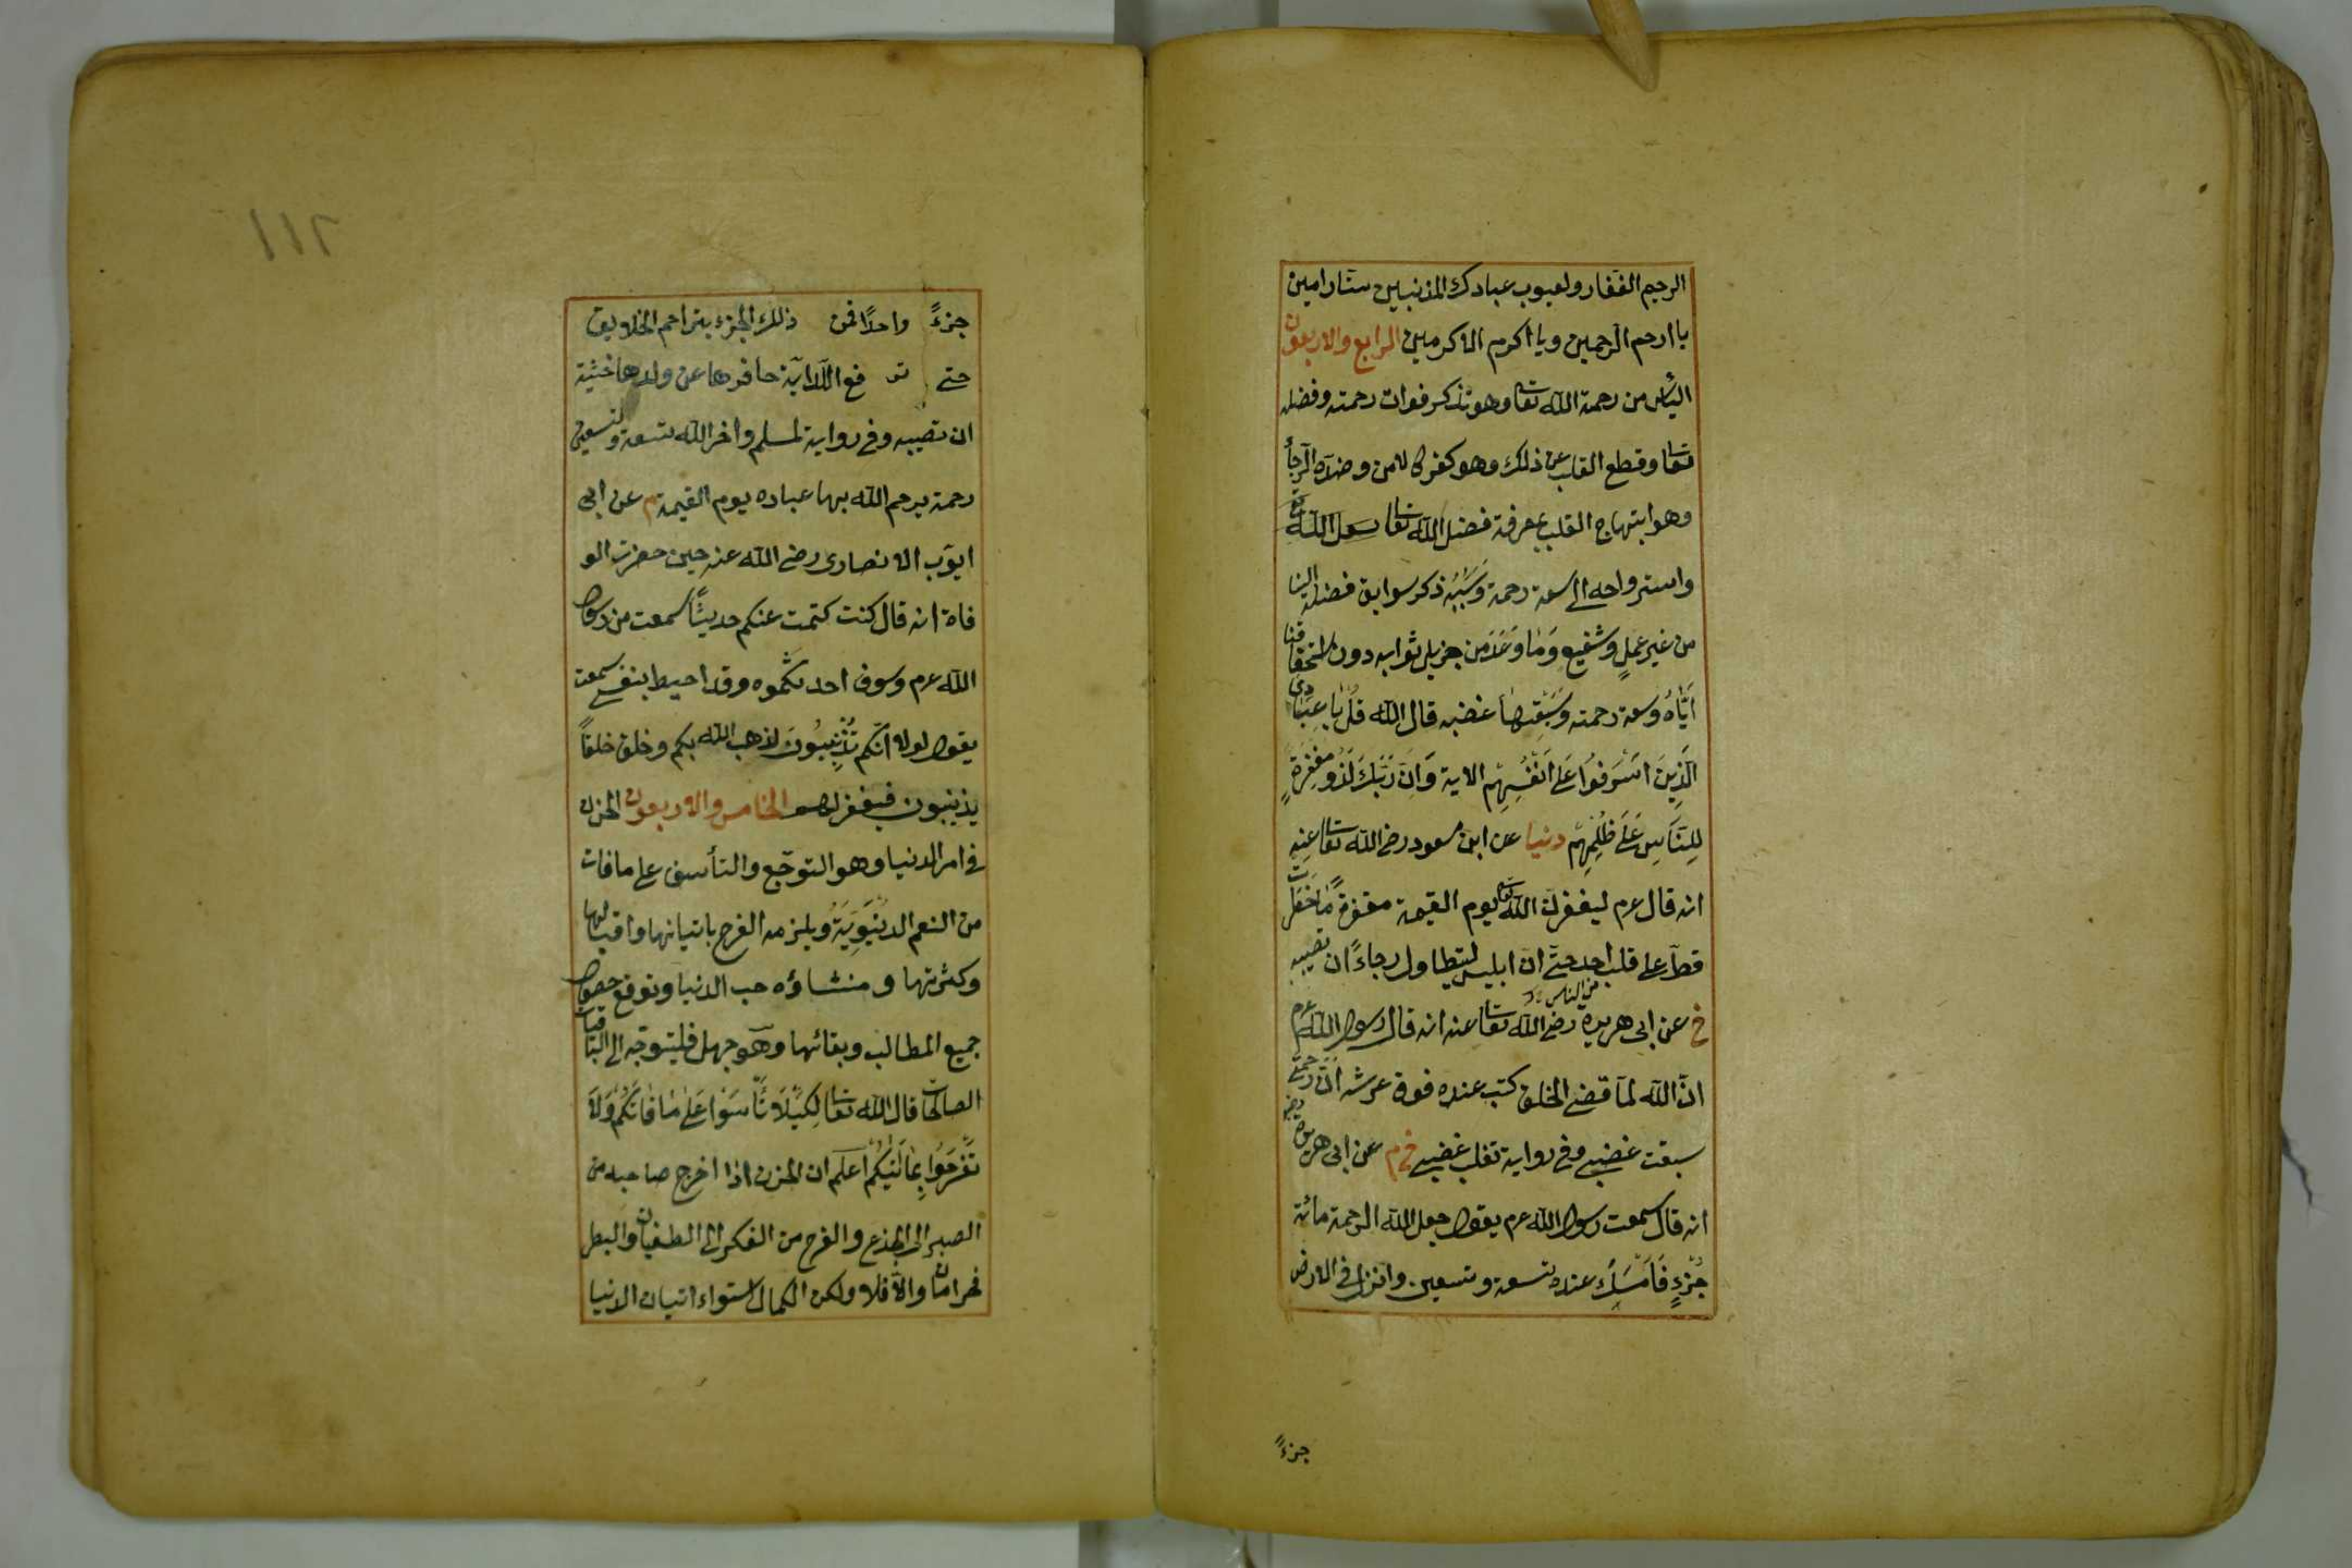 الرحيم الغفار ولعيوب عبادك المذنبين ستار امين
يا ارحم الرحمين ويا اكرم الاكرمين الرابع والاربعون
اليأس من رحمة الله تعا وهو تذكر فوات رحمته وفضله
تعا وقطع القلب عن ذلك وهو كفر كالامن وضده الرجأ
وهو ابتهاج القلب بمعرفة فضل الله تعا
واسترواحه الى سعة رحمة وسببه ذكر سوابق فضله الينا
من غير عمل وشفيع وما وعد من جزيل ثوابه دون استحقاقنا
اياه وسعة رحمته وسبقتها غضبه قال الله قل يا عبادى
الذين اسرفوا على انفسهم الاية وان ربك لذو مغفرة
للناس على ظلمهم دنيا عن ابن مسعود رضى الله تعا عنه
انه قال عرم ليغفرن الله تعا يوم القيمة مغفرة ما خطرت
قط على قلب احد حتى ان ابليس ليتطاول رجاءً ان تصيبه
خ عن ابى هريرة رضى الله تعا عنه انه قال رسول الله عرم
ان الله لما قضى الخلق كتب عنده فوق عرشه ان رحمتى
سبقت غضبى وفى رواية تغلب غضبى خ م عن ابى هريرة رضى
انه قال سمعت رسول الله عرم يقول جعل الله الرحمة مائة
جزءٍ فامسك عنده تسعة وتسعين وانزل فى الارض
جزءً
١١٢
جزءً واحدًا فمن ذلك الجزء يتراحم الخلايق
حتى تر فع الدابة حافرها عن ولدها خشية
ان تصيبه وفى رواية لمسلم واخر الله تسعة وتسعين
رحمة يرحم الله بها عباده يوم القيمة م عن ابى
ايوب الانصارى رضى الله عنه حين حضرت الو
فاة انه قال كنت كتمت عنكم حديثًا سمعت من رسول
الله عرم وسوف احدثكموه وقد احيط بنفسى سمعت
يقول لولا انكم تذنبون لذهب الله بكم وخلق خلقًا
يذنبون فيغفر لهم الخامس والاربعون الحزن
فى امر الدنيا وهو التوجع والتأسف على ما فات
من النعم الدنيوية ويلزمه الفرح باتيانها واقبالها
وكثرتها ومنشاؤه حب الدنيا وتوقع حصول
جميع المطالب وبقائها وهو جهل فليتوجه الى الباقيات
الصالحات قال الله تعا لكيلا تأسوا على ما فاتكم ولا
تفرحوا بما اتيكم اعلم ان الحزن اذا اخرج صاحبه من
الصبر الى الجذع والفرح من الفكر الى الطغيان والبطر
فحرامان والا فلا ولكن الكمال استواء اتيان الدنيا